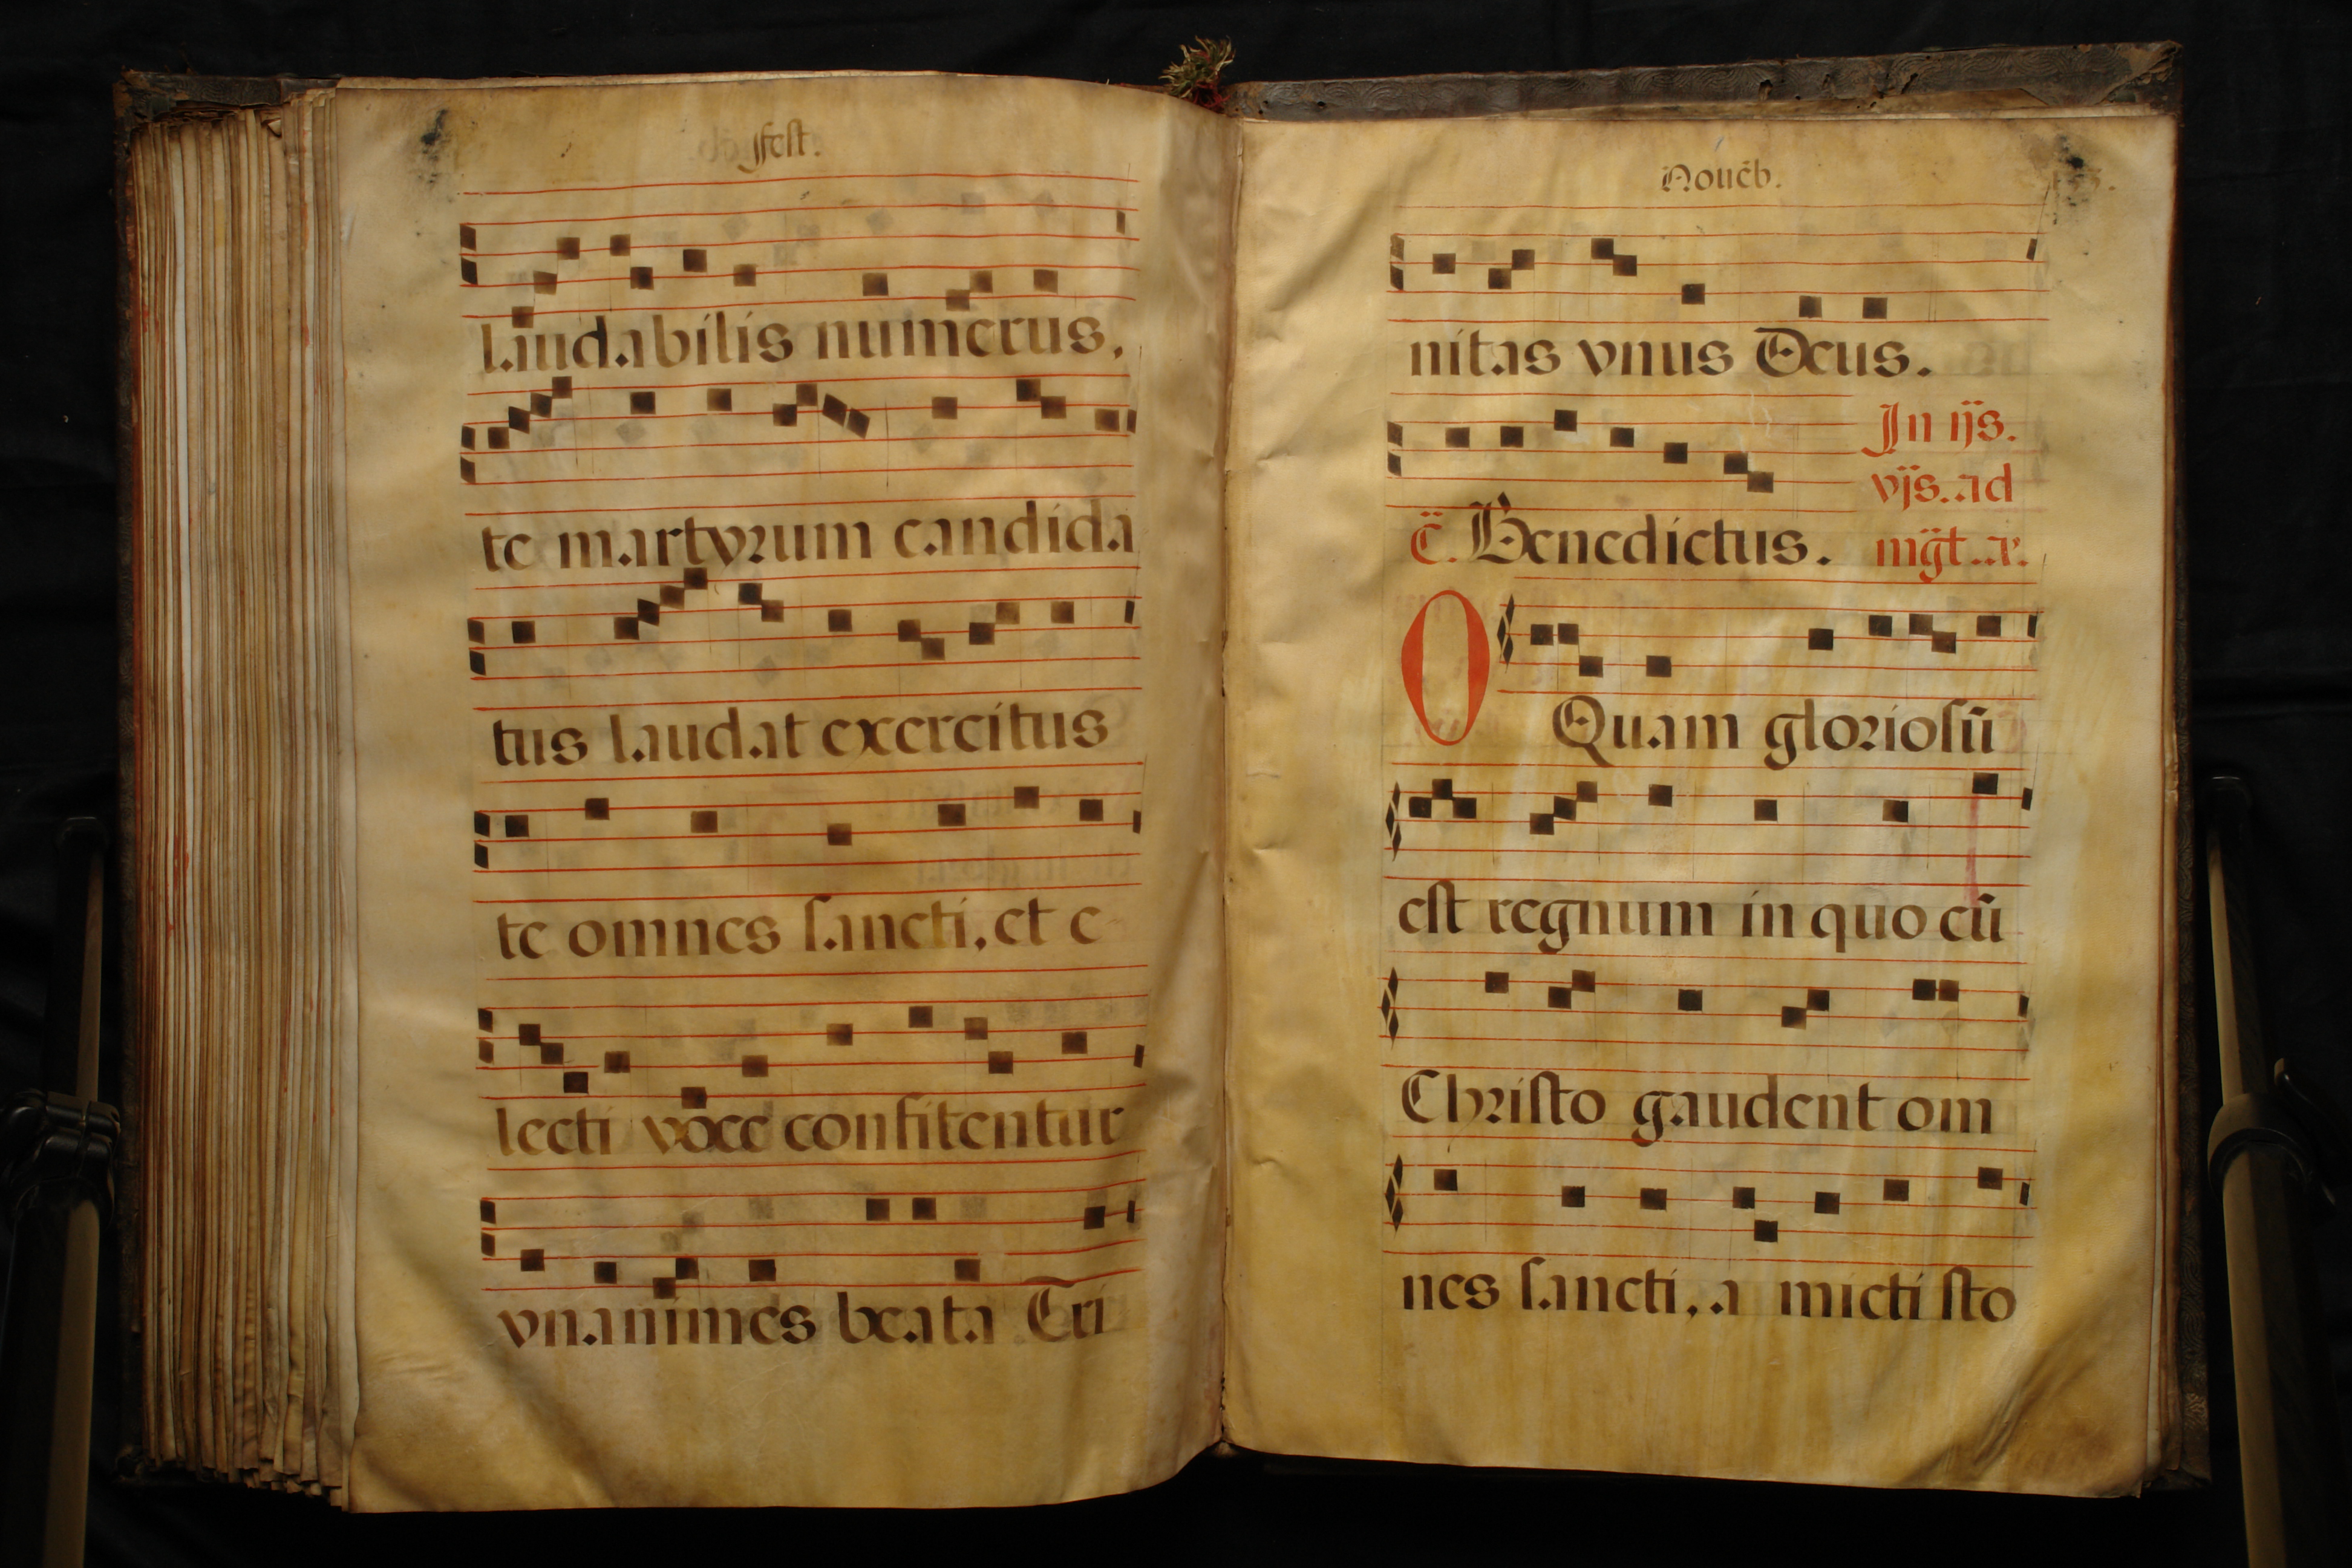 fest.
laudabilis numerus.
te martyrum candida
tus laudat exercitus
te omnes sancti, et e-
lecti voce confitentur
vnanimes beata Tri
Nouẽb.
nitas vnus Deus.
In ijs.
vjs. ad
C̃. Benedictus. mg̃t. a.
O Quam gloriosũ
est regnum in quo cũ
Christo gaudent om
nes sancti, a micti sto